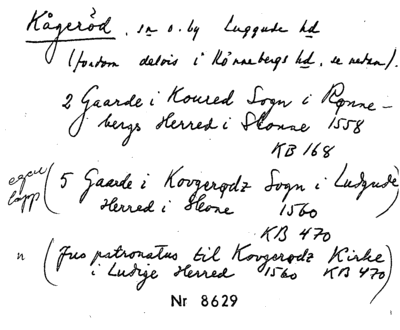 Kågeröd, sn o. by Luggude hd
(fordom delvis i Rönnebergs hd, se nedan).
2 Gaarde i Koured Sogn i Rønne-
bergs Herred i Skonne 1558
KB 168
egen lapp (5 Gaarde i Kovgerødz Sogn i Ludgude)
Herred i Skone 1560
KB 470
n (Jus patronatus til Kovgerødz Kirke
i Ludige Herred 1560 KB 470)
Nr 8629